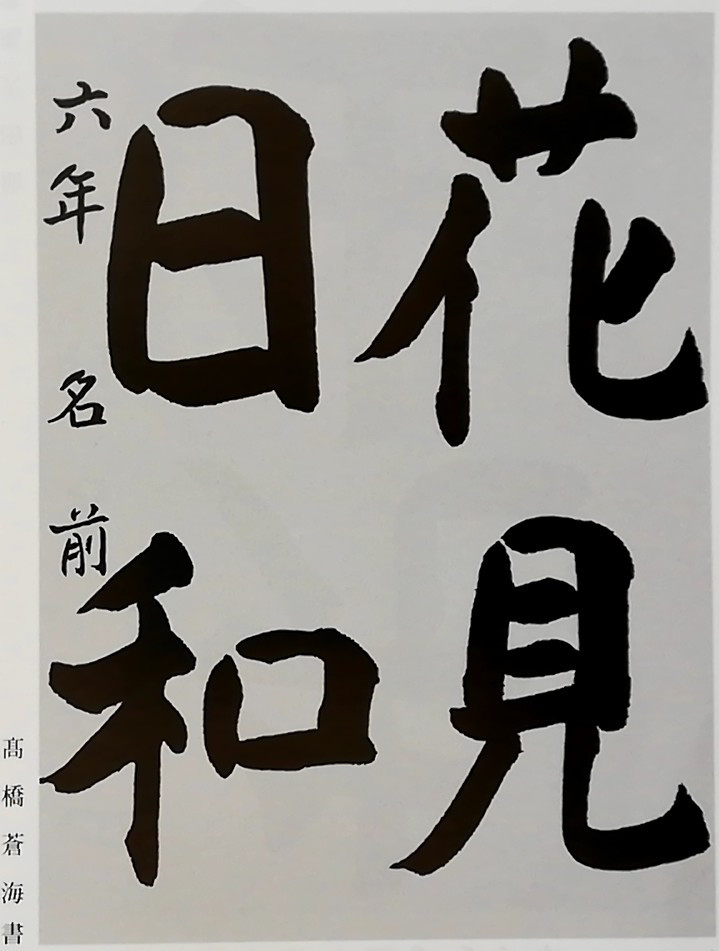 花見
日和
六年 名前
髙橋蒼海書